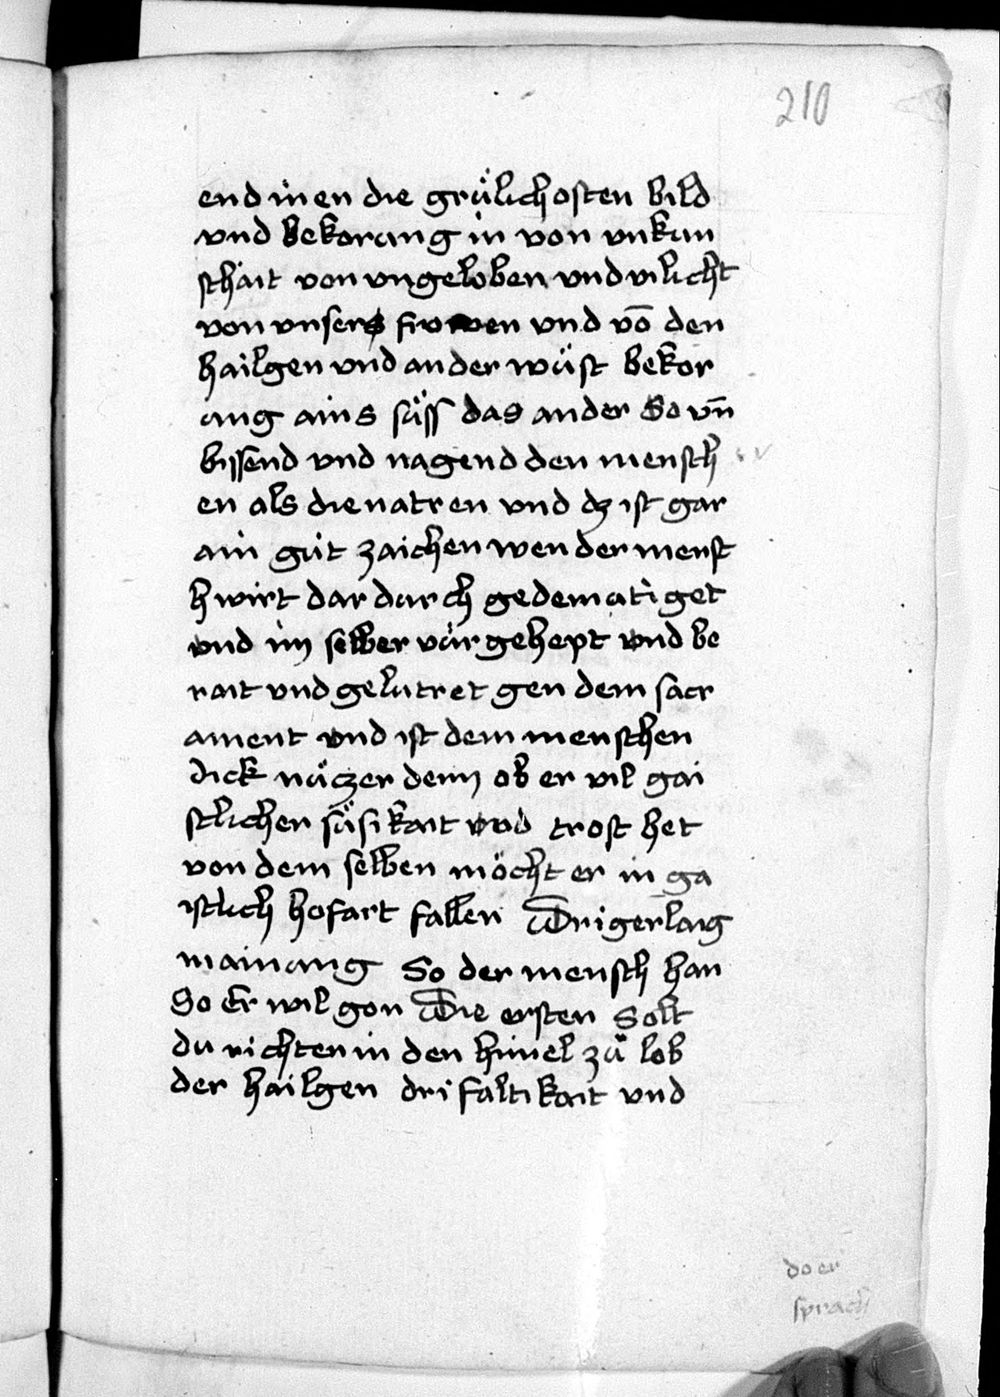 210
end inen die grülichosten bild
vnd bekorung in von vnkün
schait von vngeloben vnd vilicht
von vnsers frowen vnd vō den
hailgen vnd ander wüst bekor
ung ains süss das ander So vn̄
bissend vnd nagend den mensch
en als die natren vnd dz ist gar
ain güt zaichen wen der mensc
h wirt dar durch gedemütiget
vnd im selber vür gehept vnd be
rait vnd gelutret gen dem sacr
ament vnd ist dem menschen
dick nüczer denn ob er vil gai
stlicher süsikait vnd trost het
von dem selben möcht er in ga
istlich hofart fallen Drigerlaig
mainung So der mensch han
So Er wil gon Die ersten Solt
du richten in den himel zü lob
der hailgen drifaltikait vnd
do er
sprach